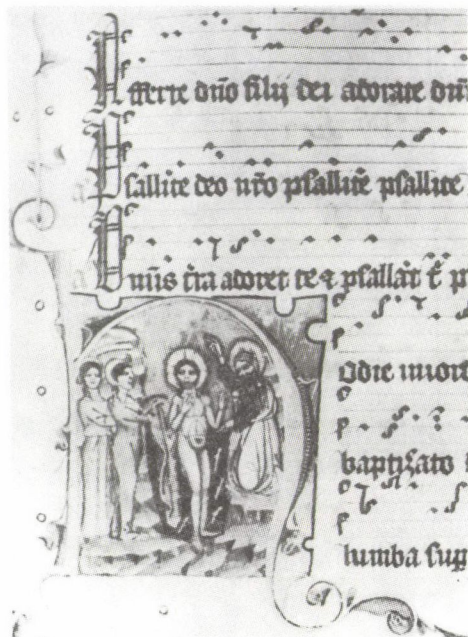 Afferte dño filij dei adorate dñm
Psallite deo nr̄o psallite psallite
Omīs t̄ra adoret te ⁊ psallat t̄
odie iniord
baptizato
lumba sup